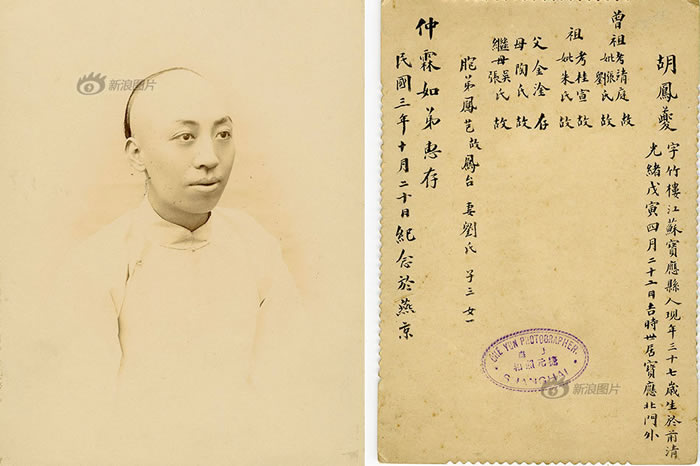 新浪图片
胡鳳夔
字竹樓江蘇寶應縣人現年三十七歲生於前清
光緒戊寅四月二十二日吉時世居寶應北門外
曾祖考清庭故
妣張氏劉
祖考桂宣故
妣朱氏故
父金淦存
母陶氏故
繼母吳氏張故
胞弟鳳芑故鳳台 妻劉氏 子三女一
仲霖如弟惠存
民國三年十月二十日紀念於燕京
PHOTOGRAPHER.
新浪图片